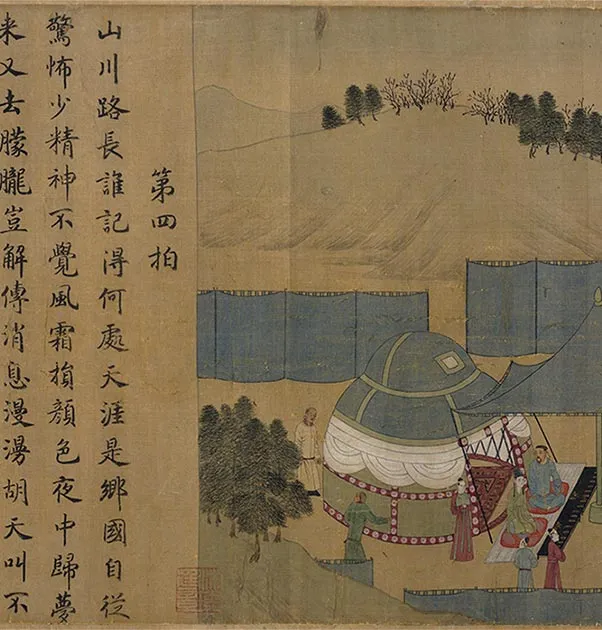 第四拍
山川路長誰記得何處天涯是鄉國自從
驚怖少精神不覺風霜損顏色夜中歸夢
来又去朦朧豈解傳消息漫漫胡天叫不